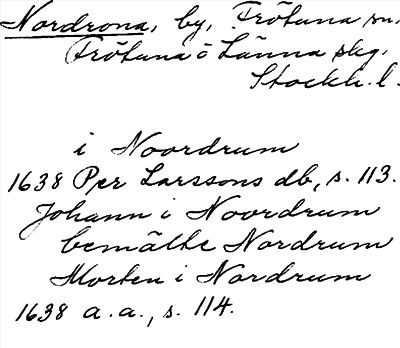 Nordrona, by, Frötuna sn,
Frötuna o Länna skg.
Stockh. l.
i Noordrum
1638 Per Larssons db, s. 113.
Johann i Noordrum
bemälte Nordrum
Morten i Nordrum
1638 a. a., s. 114.